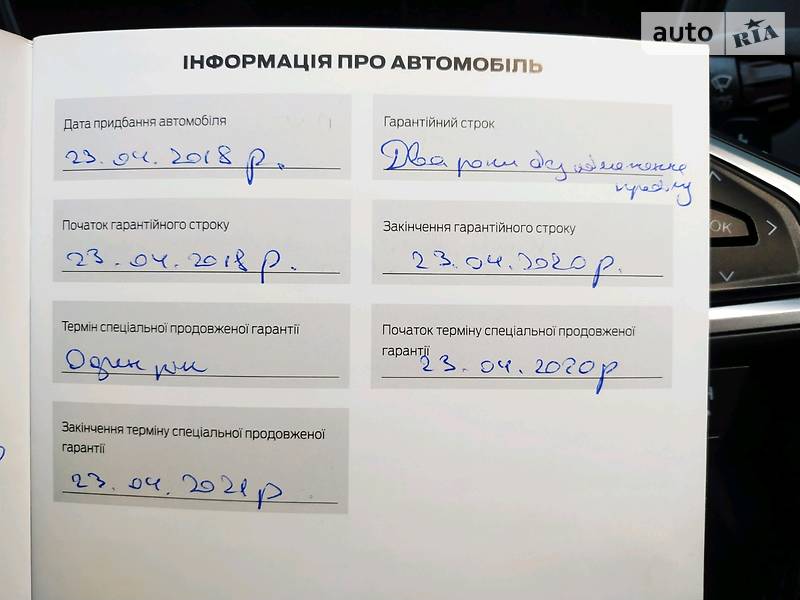 auto RIA
ІНФОРМАЦІЯ ПРО АВТОМОБІЛЬ
Дата придбання автомобіля
23.04.2018 р.
Гарантійний строк
Два роки без обмеження
пробігу
Початок гарантійного строку
23.04.2018 р.
Закінчення гарантійного строку
23.04.2020 р.
Термін спеціальної продовженої гарантії
Один рік
Початок терміну спеціальної продовженої
гарантії
23.04.2020 р
Закінчення терміну спеціальної продовженої
гарантії
23.04.2021 р
OK